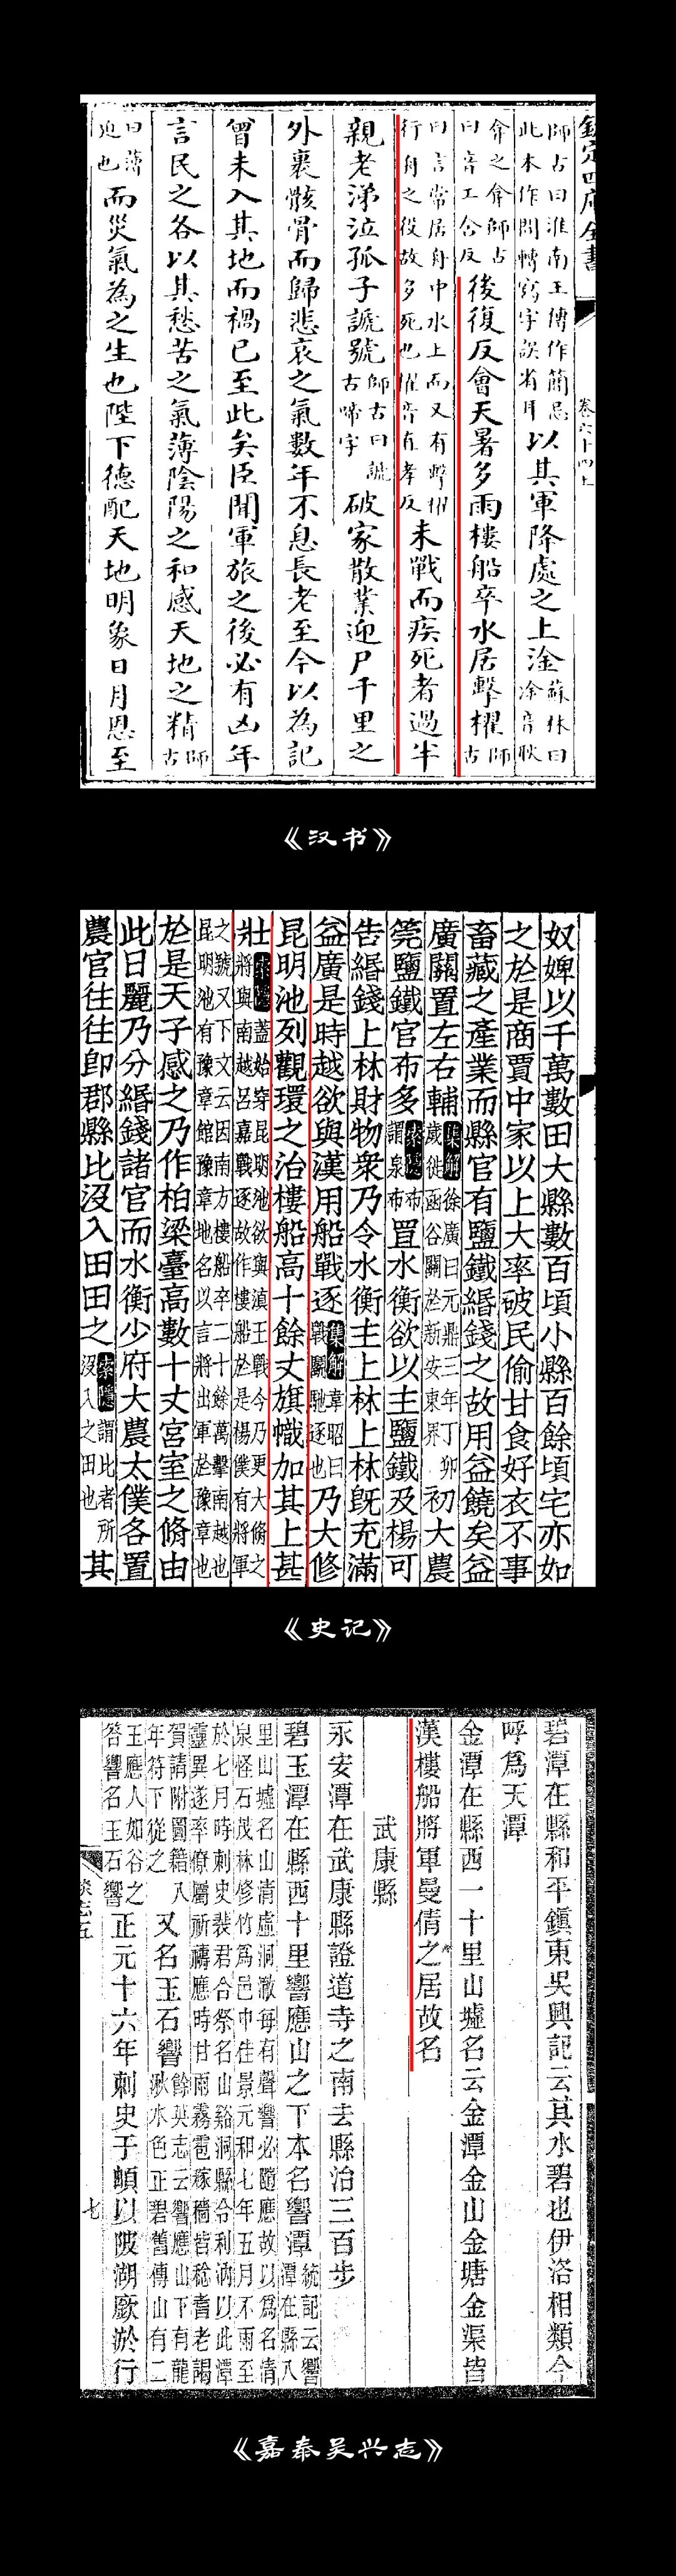 欽定四庫全書
卷六十四上
師古曰淮南王傳作簡忌此本作間轉寫字誤省耳以其軍降處之上淦蘇林曰淦音耿
弇之弇師古曰音工含反後復反會天暑多雨樓船卒水居擊櫂師古
曰言常居舟中水上而又有擊櫂行舟之役故多死也櫂音直孝反未戰而疾死者過半
親老涕泣孤子謕號師古曰謕古啼字破家散業迎尸千里之
外裹骸骨而歸悲哀之氣數年不息長老至今以為記
曾未入其地而禍已至此矣臣聞軍旅之後必有凶年
言民之各以其愁苦之氣薄陰陽之和感天地之精師古
曰薄迫也而災氣為之生也陛下德配天地明象日月恩至
《汉书》
奴婢以千萬數田大縣數百頃小縣百餘頃宅亦如
之於是商賈中家以上大率破民偷甘食好衣不事
畜藏之產業而縣官有鹽鐵緡錢之故用益饒矣益
廣關置左右輔集解徐廣曰元鼎三年丁卯歲徙函谷關於新安東界初大農
筦鹽鐵官布多索隱布謂泉布置水衡欲以主鹽鐵及楊可
告緡錢上林財物衆乃令水衡主上林上林旣充滿
益廣是時越欲與漢用船戰逐集解韋昭曰戰鬭馳逐也乃大修
昆明池列觀環之治樓船高十餘丈旗幟加其上甚
壯索隱蓋始穿昆明池欲與滇王戰今乃更大脩之將與南越呂嘉戰逐故作樓船於是楊僕有將軍
之號又下文云因南方樓船卒二十餘萬擊南越也昆明池有豫章館豫章地名以言將出軍於豫章也
於是天子感之乃作柏梁臺高數十丈宮室之脩由
此日麗乃分緡錢諸官而水衡少府大農太僕各置
農官往往卽郡縣比沒入田田之索隱謂比者所沒入之田也其
《史记》
碧潭在縣和平鎭東吳興記云其水碧也伊洛相類今
呼爲天潭
金潭在縣西一十里山墟名云金潭金山金塘金渠皆
漢樓船將軍曼倩之居故名
武康縣
永安潭在武康縣證道寺之南去縣治三百步
碧玉潭在縣西十里響應山之下本名響潭統記云響潭在縣八
里山墟名山淸虛洞澈每有聲響必隨應故以爲名淸泉怪石茂林修竹爲邑中佳景元和七年五月不雨至
於七月時刺史裴君合祭名山谿洞縣令利泂以此潭靈異遂率僚屬祈禱應時甘雨霧霑稼穡皆稔耆老謁
賀請附圖籍八年符下從之又名玉石響餘英志云響應山下有龍湫水色正碧舊傳山有二
玉應人如谷之答響名玉石響正元十六年刺史于頔以陂湖厭淤行
談志五
七
《嘉泰吴兴志》